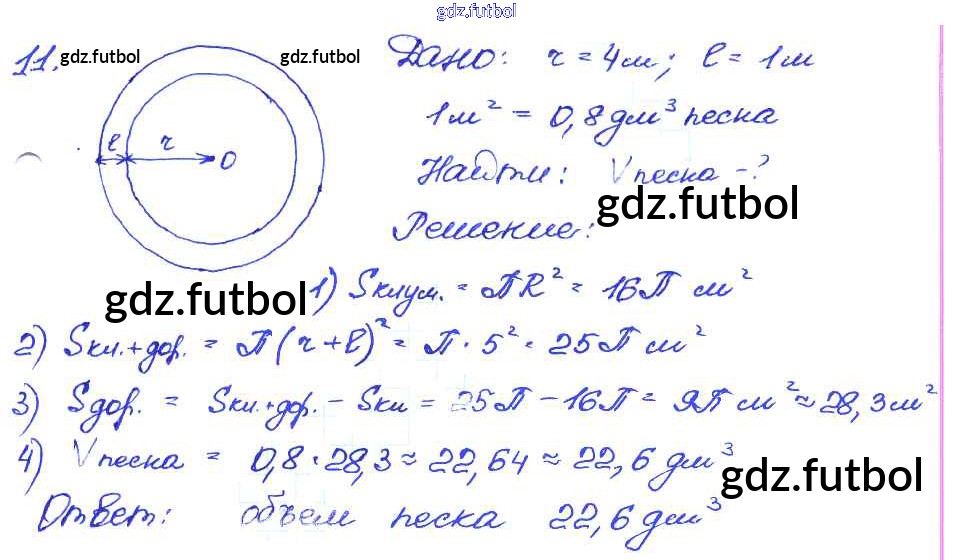 gdz.futbol
11. gdz.futbol gdz.futbol Дано: r = 4м; l = 1м
1м² = 0,8 дм³ песка
l r O
Найти: Vпеска - ?
gdz.futbol
Решение:
gdz.futbol
1) Sклум. = ПR² = 16П м²
2) Sкл.+дор. = П(r+l)² = П · 5² = 25П м²
3) Sдор. = Sкл.+дор. - Sкл = 25П - 16П = 9П м² ≈ 28,3м²
4) Vпеска = 0,8 · 28,3 ≈ 22,64 ≈ 22,6 дм³
gdz.futbol
Ответ: объем песка 22,6 дм³